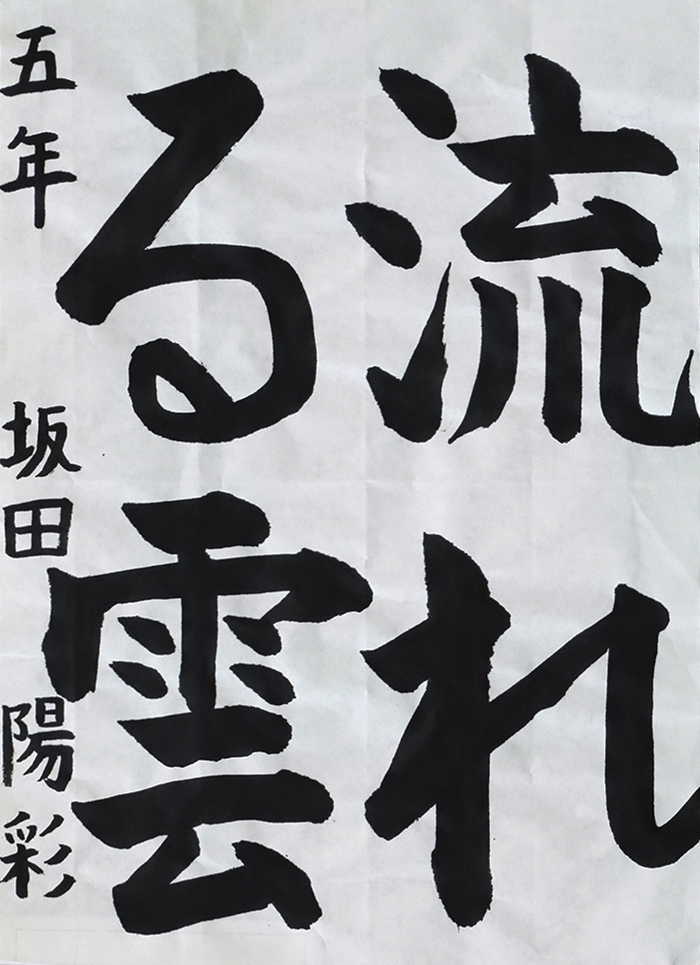 流れ
る雲
五年 坂田 陽彩